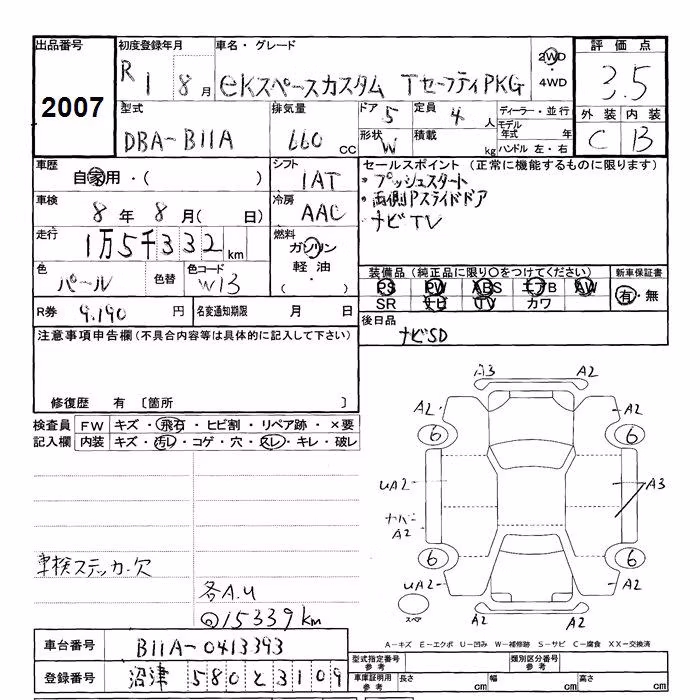 出品番号 初度登録年月 車名・グレード 評価点
2007 R1 8月 eKスペースカスタム TセーフティPKG 2WD・4WD 3.5
型式 排気量 ドア 5 定員 4人 ディーラー・並行 外装 内装
DBA-B11A 660 cc 形状 W 積載 kg モデル年式 年 ハンドル 左・右 C B
車歴 自家用・( ) シフト 1AT セールスポイント (正常に機能するものに限ります)
・プッシュスタート
車検 8年8月( 日) 冷房 AAC ・両側Pスライドドア
走行 1万5千332km 燃料 ガソリン・軽油・( ) ・ナビTV
色 パール 色替 色コード W13 装備品(純正品に限り○をつけてください) 新車保証書
PS PW ABS エアB AW 有・無
SR ナビ TV カワ
R券 9.190円 名変通知期限 月 日 後日品
注意事項申告欄(不具合内容等は具体的に記入して下さい) ナビSD
修復歴 有〔箇所 〕
検査員 FW キズ・飛石・ヒビ割・リペア跡・×要
記入欄 内装 キズ・汚レ・コゲ・穴・スレ・キレ・破レ
A3 A2
A2 A2
6 6
UA2 A3
A2
6 6
UA2 A2
スペア A2 A2
車検ステッカー欠
各A.U
◎15339km
A-キズ E-エクボ U-凹み W-補修跡 S-サビ C-腐食 XX-交換済
車台番号 B11A-0413393 型式指定番号 参考 類別区分番号 参考
登録番号 沼津 580 と 3109 車庫証明用 参考 長さ cm 幅 cm 高さ cm